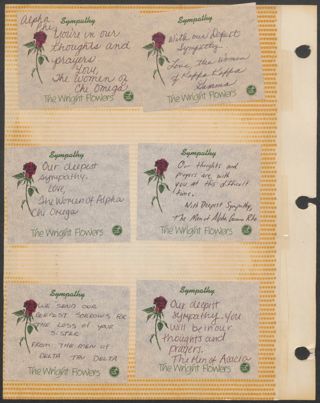 Sympathy
Alpha
Phi
You're in our
thoughts and
prayers
Love,
The Women of
Chi Omega
The Wright Flowers
Sympathy
With our Deepest
Sympathy.
Love, the Women
of Kappa Kappa
Gamma
The Wright Flowers
Sympathy
Our deepest
sympathy.
Love,
The Women of Alpha
Chi Omega
The Wright Flowers
Sympathy
Our thoughts and
prayers are with
you at this difficult
time.
With Deepest Sympathy,
The Men of Alpha Gamma Rho
The Wright Flowers
Sympathy
WE SEND OUR
DEEPEST SORROWS FOR
THE LOSS OF YOUR
SISTER
FROM THE MEN OF
DELTA TAU DELTA
The Wright Flowers
Sympathy
Our deepest
sympathy. You
will be in our
thoughts and
prayers.
The Men of Acacia
The Wright Flowers